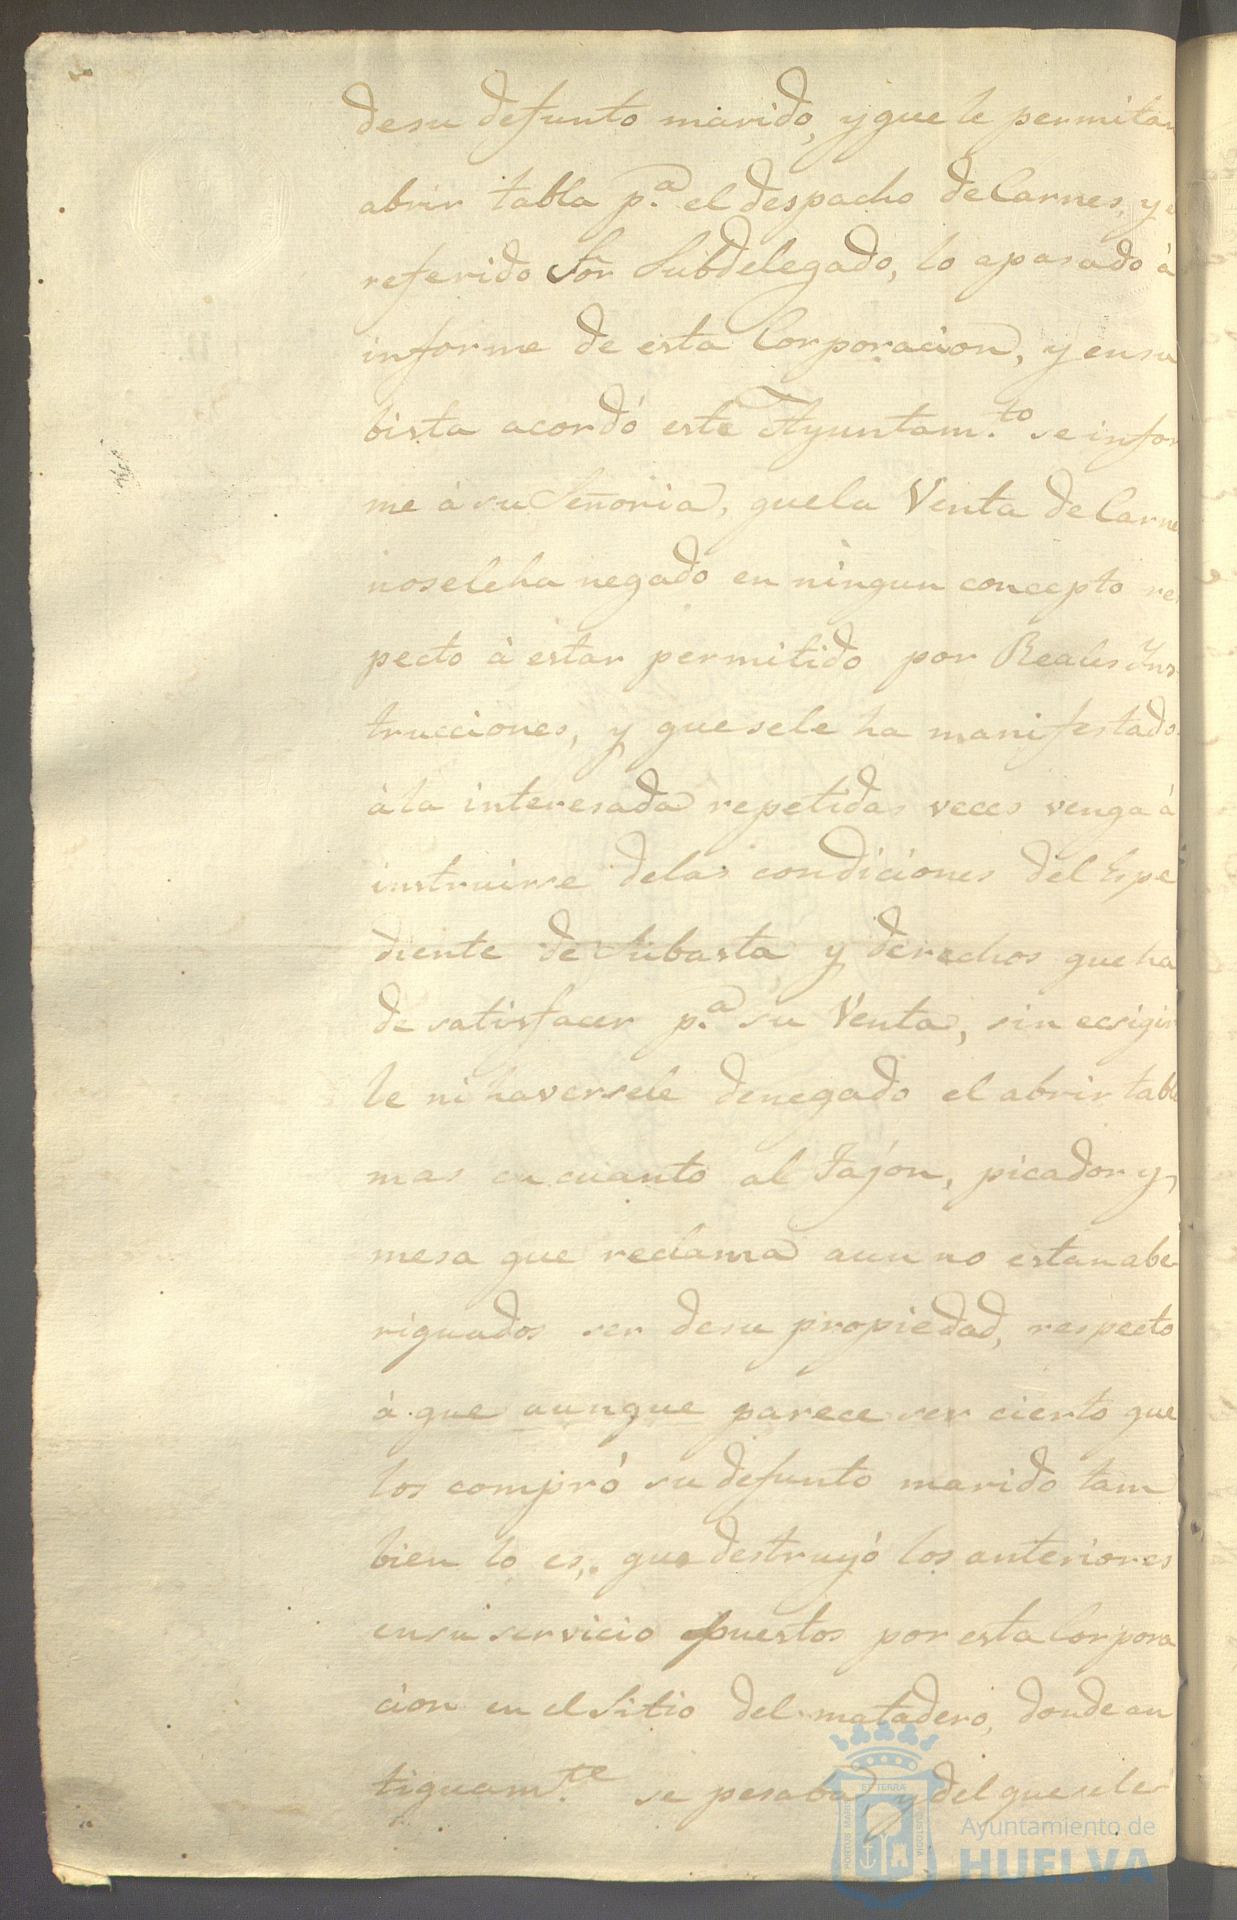 desu defunto marido, y que le permitan
abrir tabla p.ª el despacho de Carnes, y e
referido Sor Subdelegado, lo apasado á
informe de esta Corporacion, y ensu
bista acordó este Ayuntam.to se infor
me á su Señoria, quela Venta de Carne
noseleha negado en ningun concepto res
pecto á estar permitido por Reales Yns
trucciones, y quesele ha manifestado
ála interesada repetidas veces venga á
instruirse delas condiciones del Espe
diente de Subasta y derechos que ha
de satisfacer p.ª su Venta, sin ecsigir
le ni haversele denegado el abrir tabla
mas encuanto al Tajon, picador y
mesa que reclama aun no estan abe
riguados ser desu propiedad, respecto
á que aunque parece ser cierto que
los compró su defunto marido tam
bien lo es, que destruyó los anteriores
ensu servicio puestos por esta Corpora
cion en el Sitio del matadero, donde an
tiguam.te se pesaba, y del que sele
Ayuntamiento de
HUELVA